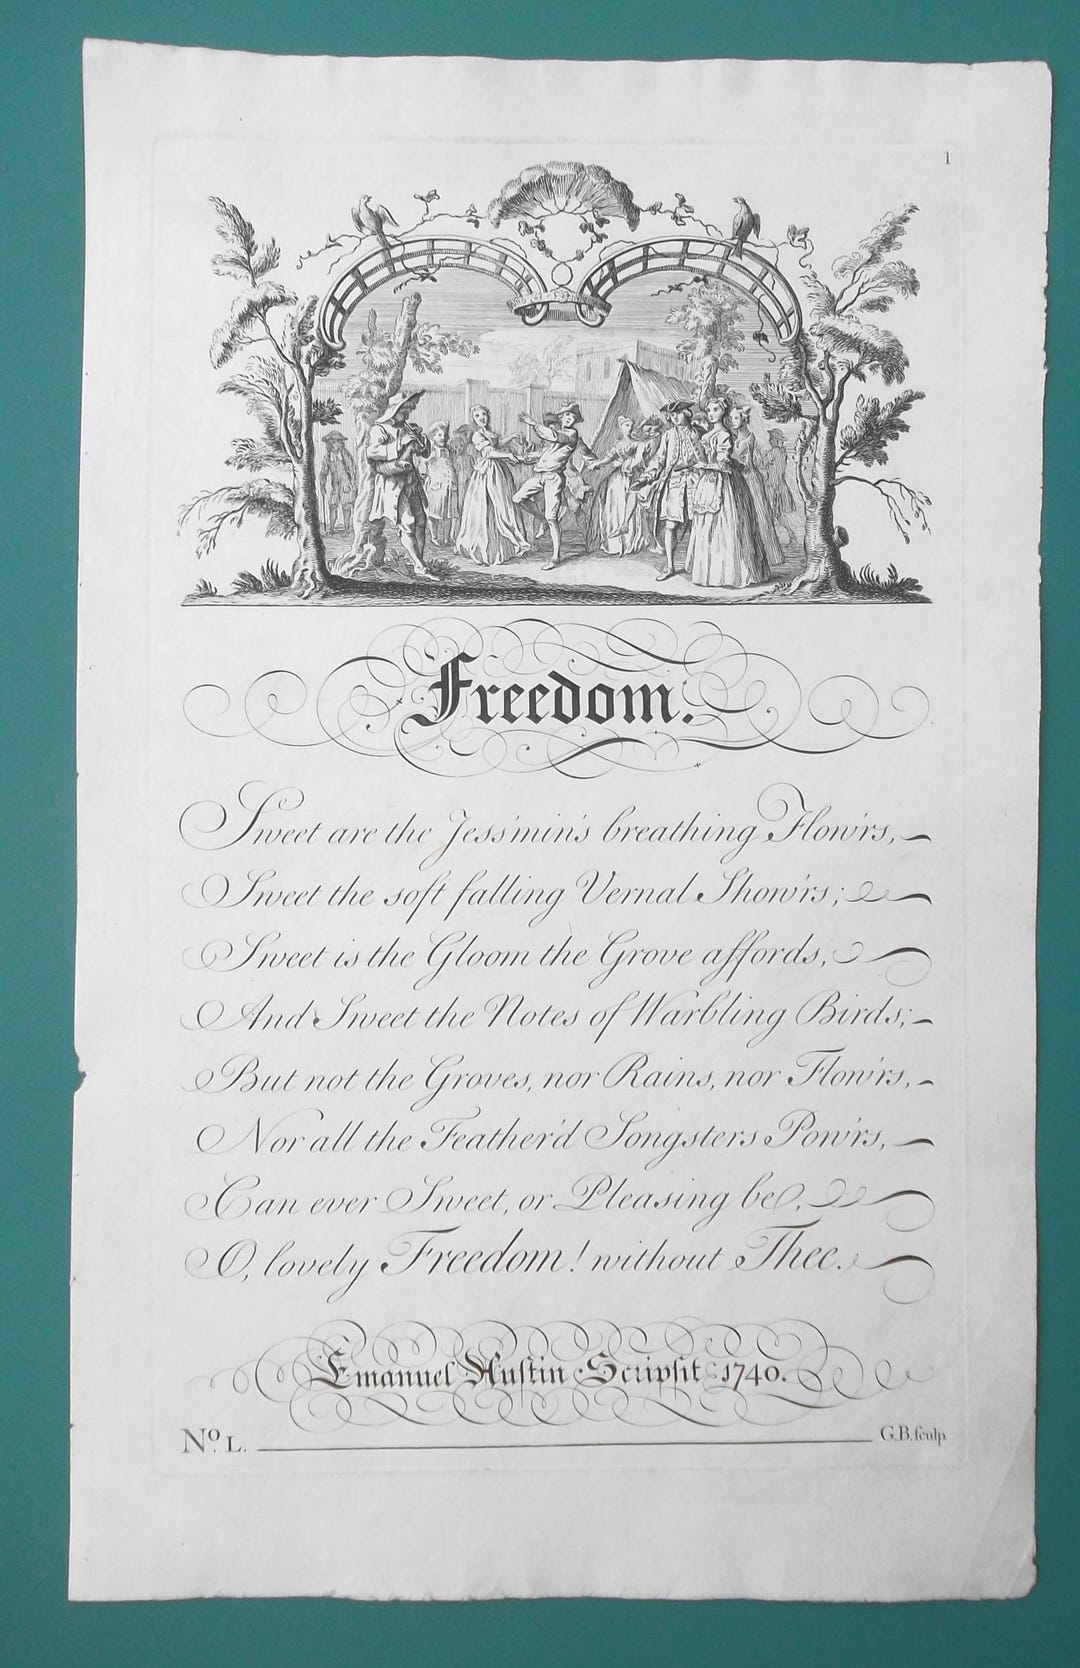 1
Freedom.
Sweet are the Jess'min's breathing Flow'rs,
Sweet the soft falling Vernal Show'rs;
Sweet is the Gloom the Grove affords,
And Sweet the Notes of Warbling Birds;
But not the Groves, nor Rains, nor Flow'rs,
Nor all the Feather'd Songsters Pow'rs,
Can ever Sweet, or Pleasing be,
O, lovely Freedom! without Thee.
Emanuel Austin Scripsit 1740.
No. L.
G.B. sculp